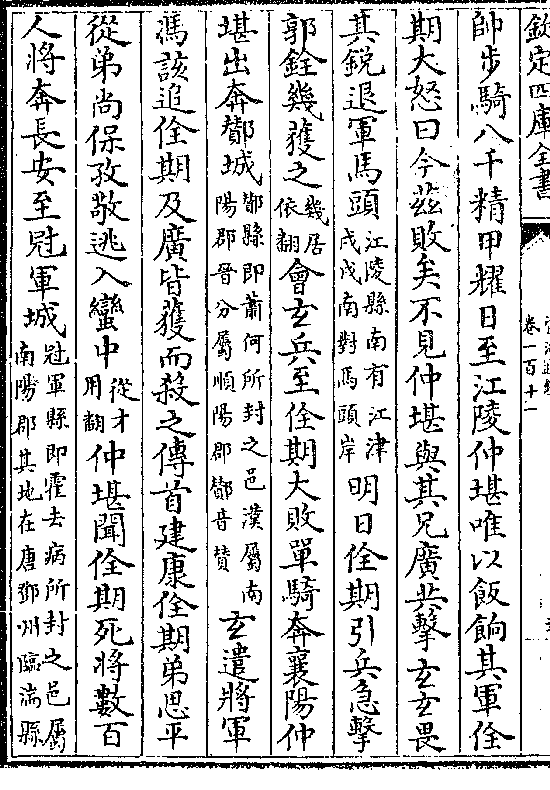 欽定四庫全書
卷一百十一
帥步騎八千精甲耀日至江陵仲堪唯以飯餉其軍佺
期大怒曰今兹敗矣不見仲堪與其兄廣共擊玄玄畏
其銳退軍馬頭江陵縣南有江津戍戍南對馬頭岸明日佺期引兵急擊
郭銓幾獲之幾居依翻會玄兵至佺期大敗單騎奔襄陽仲
堪出奔酇城酇縣即蕭何所封之邑漢屬南陽郡晉分屬順陽郡酇音贊玄遣將軍
馮該追佺期及廣皆獲而殺之傳首建康佺期弟思平
從弟尚保孜敬逃入蠻中從才用翻仲堪聞佺期死將數百
人將奔長安至冠軍城冠軍縣即霍去病所封之邑屬南陽郡其地在唐鄧州臨湍縣